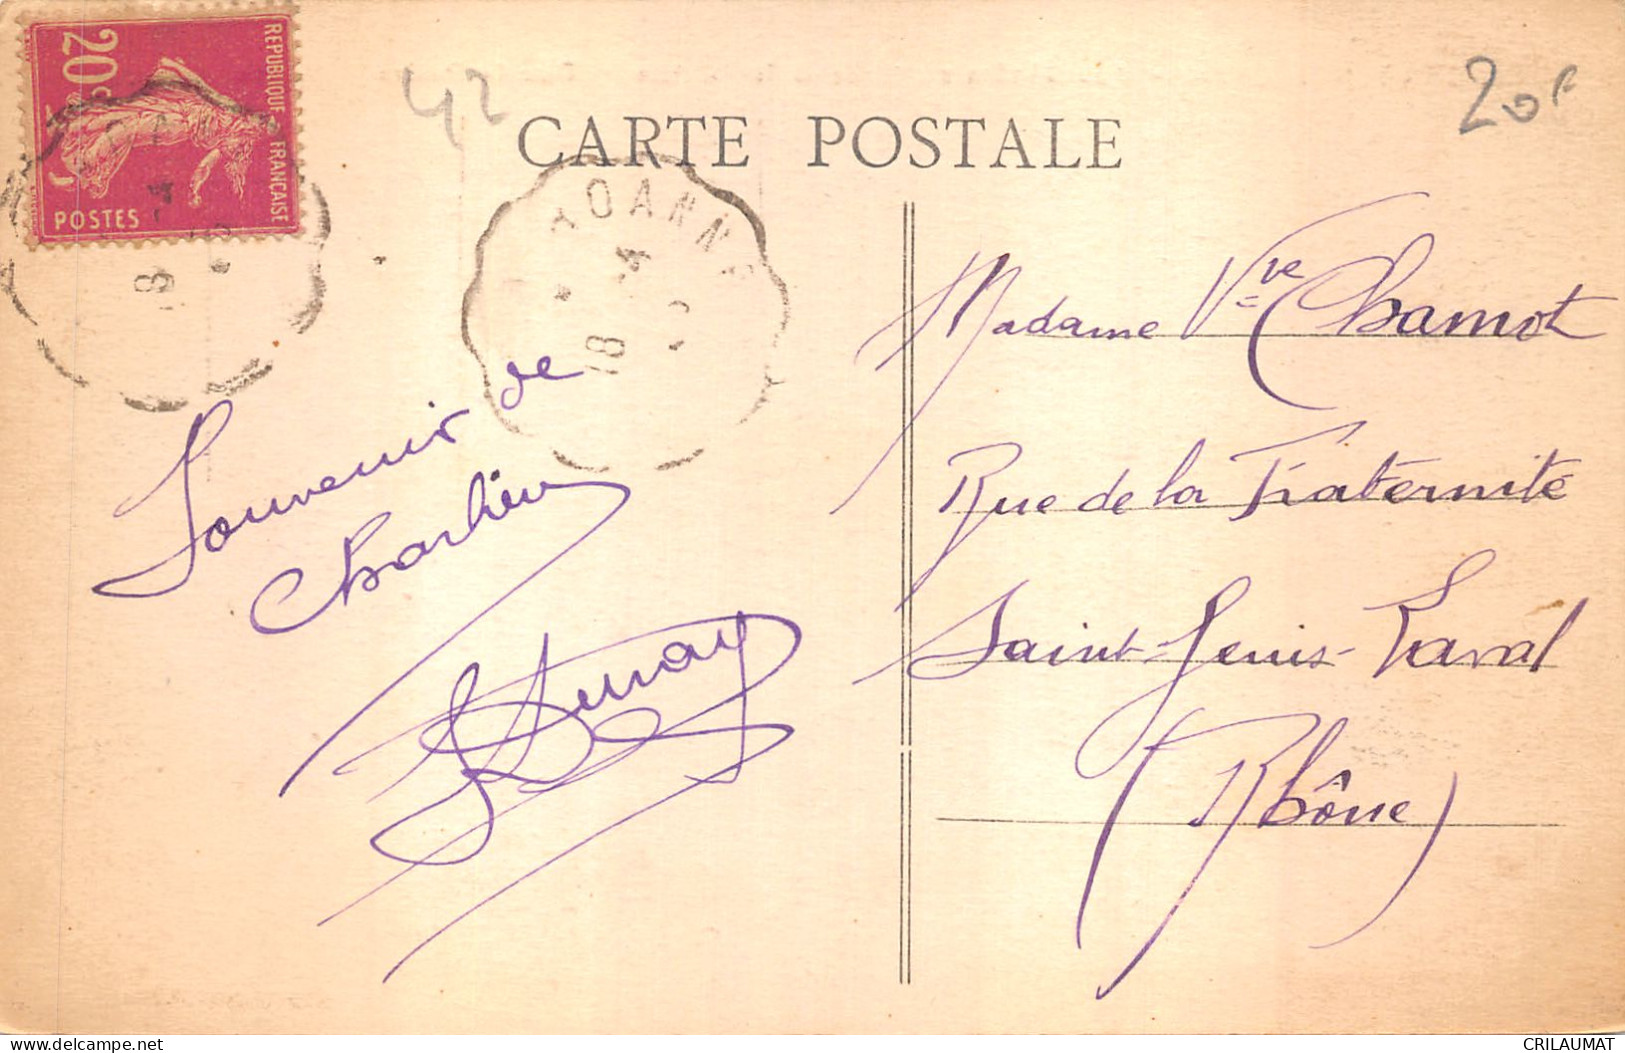 REPUBLIQUE FRANÇAISE
20c
POSTES
42
CARTE POSTALE
20F
ROANNE
18 -4
18 -4
Souvenir de
Charlieu
Madame Vve Chamot
Rue de la Fraternité
Saint-Genis-Laval
(Rhône)
www.delcampe.net
CRILAUMAT